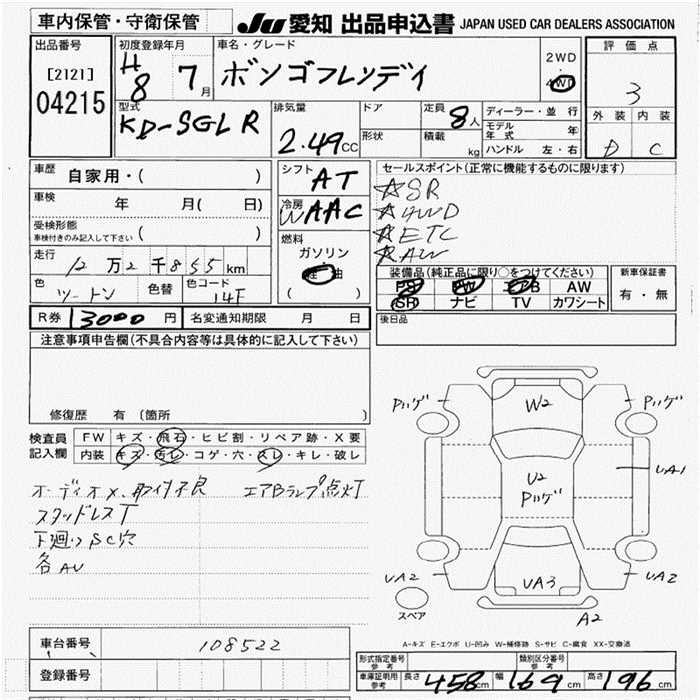 車内保管・守衛保管
JU 愛知 出品申込書 JAPAN USED CAR DEALERS ASSOCIATION
出品番号
[2121]
04215
初度登録年月
H8 7月
車名・グレード
ボンゴフレンディ
2WD
・
4WD
評価点
3
外装 内装
D C
型式
KD-SGLR
排気量
2.49CC
ドア
形状
定員 8人
積載 kg
ディーラー・並行
モデル年式 年
ハンドル 左・右
車歴 自家用・( )
車検 年 月( 日)
受検形態
車検付きのみ記入して下さい ( )
走行 12万2千855km
色 ツートン 色替 色コード 14F
R券 13000円 名変通知期限 月 日
シフト AT
冷房 WAAC
燃料
ガソリン
軽・油
( )
セールスポイント(正常に機能するものに限ります)
☆SR
☆4WD
☆ETC
☆RAW
装備品(純正品に限り○をつけてください)
PS PW エアB AW
SR ナビ TV カワシート
新車保証書
有・無
後日品
注意事項申告欄(不具合内容等は具体的に記入して下さい)
修復歴 有(箇所
検査員記入欄
FW キズ・飛石・ヒビ割・リペア跡・X要
内装 キズ・汚レ・コゲ・穴・スレ・キレ・破レ
オーディオメ、取付不良 エアBランプ点灯
スタッドレスT
下廻りSC穴
各AU
W2
Pハゲ Pハゲ
U2
Pハゲ
UA1
UA2 UA3 UA2
スペア
A2
A-キズ E-エクボ U-凹み W-補修跡 S-サビ C-腐食 XX-交換済
車台番号 108522
登録番号
形式指定番号 参考
類別区分番号 参考
車庫証明用 参考 長さ 458cm 幅 169cm 高さ 196cm